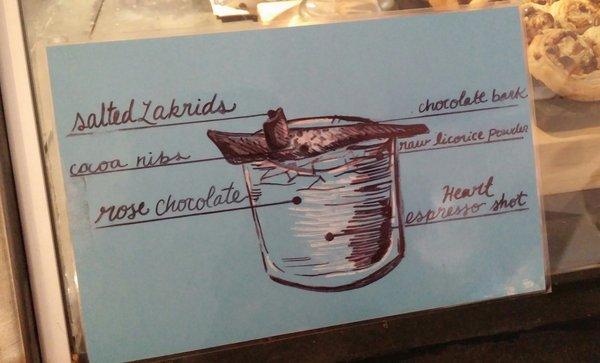 salted Lakrids
cocoa nibs
rose chocolate
chocolate bark
raw licorice powder
Heart
espresso shot